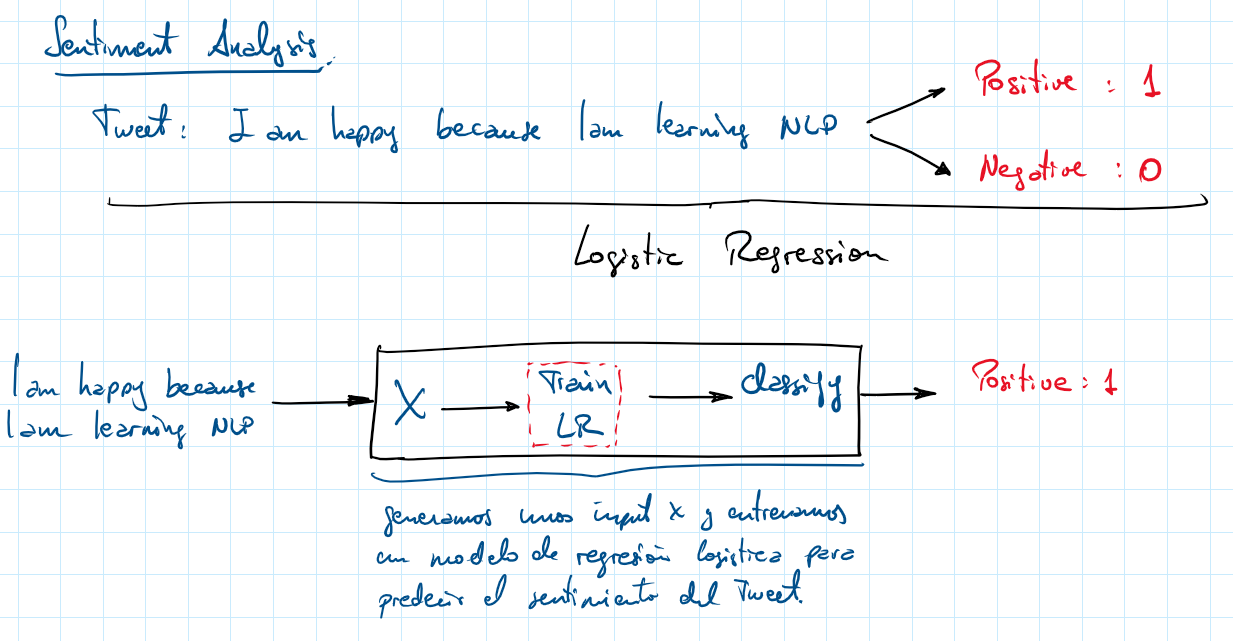 Sentiment Analysis.
Tweet: I am happy because I am learning NLP
Positive : 1
Negative : 0
Logistic Regression
I am happy because
I am learning NLP
X
Train
LR
classify
Positive : 1
generamos unos input X y entrenamos
un modelo de regresión logistica para
predecir el sentimiento del Tweet.